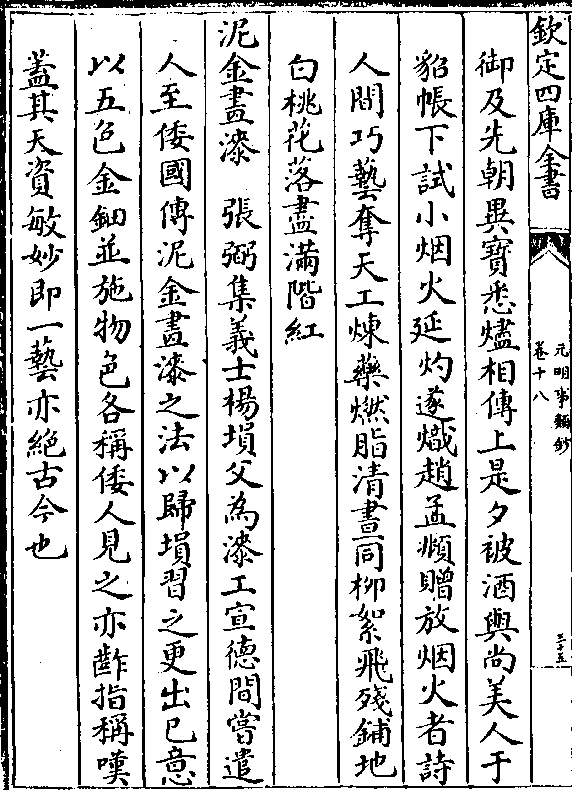 欽定四庫全書
元明事類鈔
卷十八
三十五
御及先朝異寶悉燼相傳上是夕被酒與尚美人于
貂帳下試小烟火延灼遂熾趙孟頫贈放烟火者詩
人間巧藝奪天工煉藥燃脂清晝同栁絮飛殘鋪地
白桃花落盡滿階紅
泥金畫漆　張弼集義士楊塤父為漆工宣德間嘗遣
人至倭國傳泥金畫漆之法以歸塤習之更出已意
以五色金鈿並施物色各稱倭人見之亦齚指稱嘆
葢其天資敏妙即一藝亦絶古今也